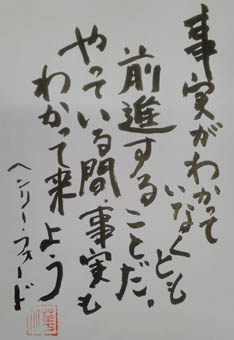 事実がわかって
いなくとも
前進することだ。
やっている間、事実も
わかって来よう
ヘンリー・フォード